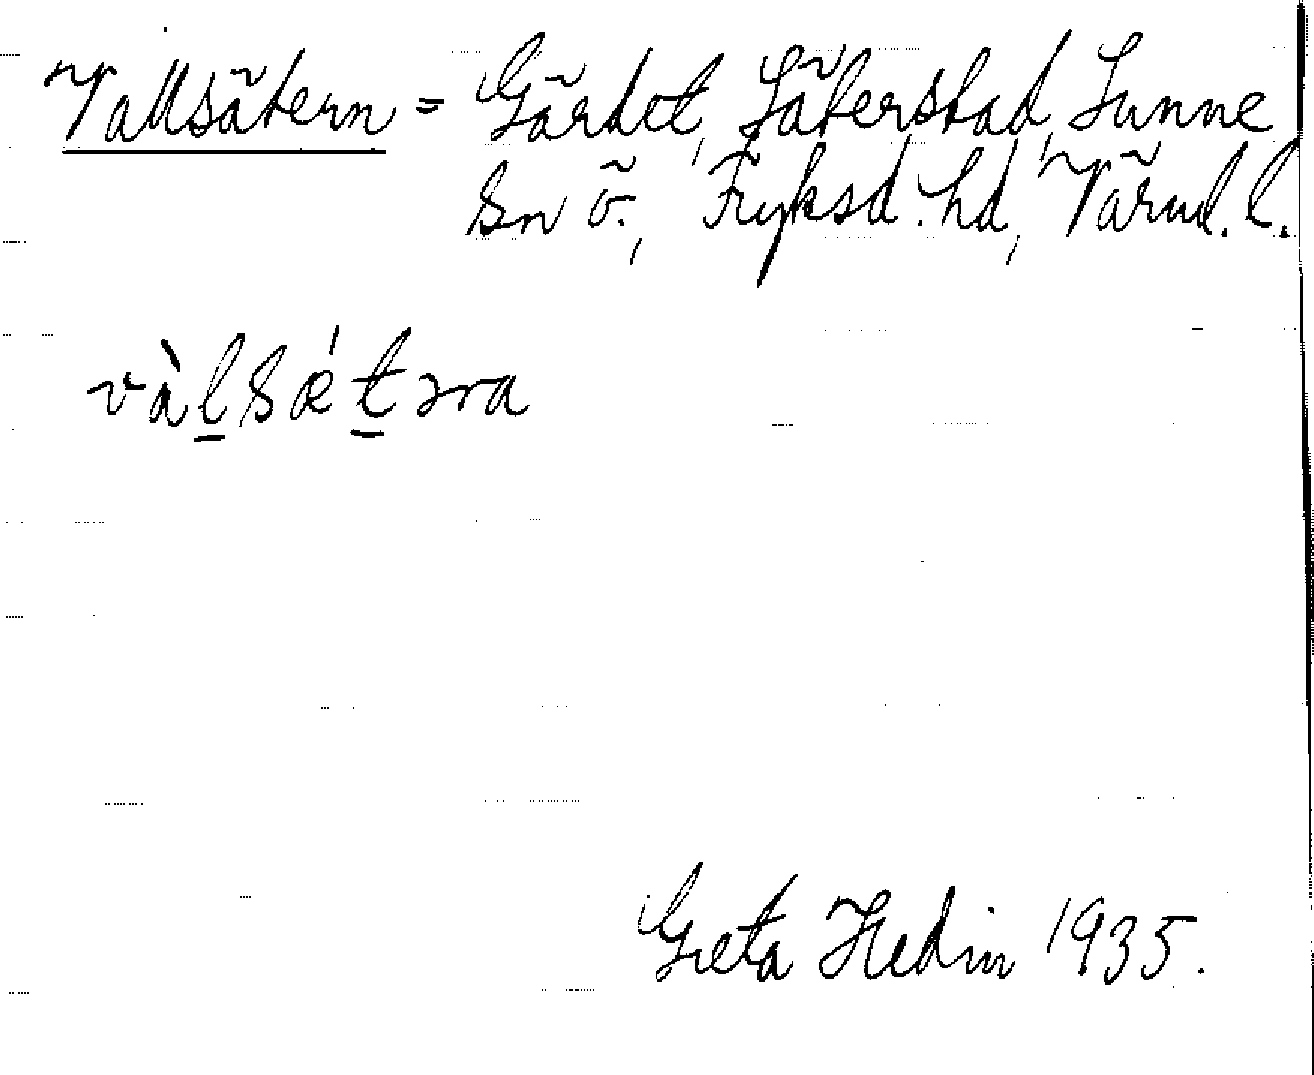 Vallsätern = Gärdet, Säterstad, Sunne
sn ö., Fryksd. hd, Värml. l.
vàlsǽtəra
Greta Hedin 1935.